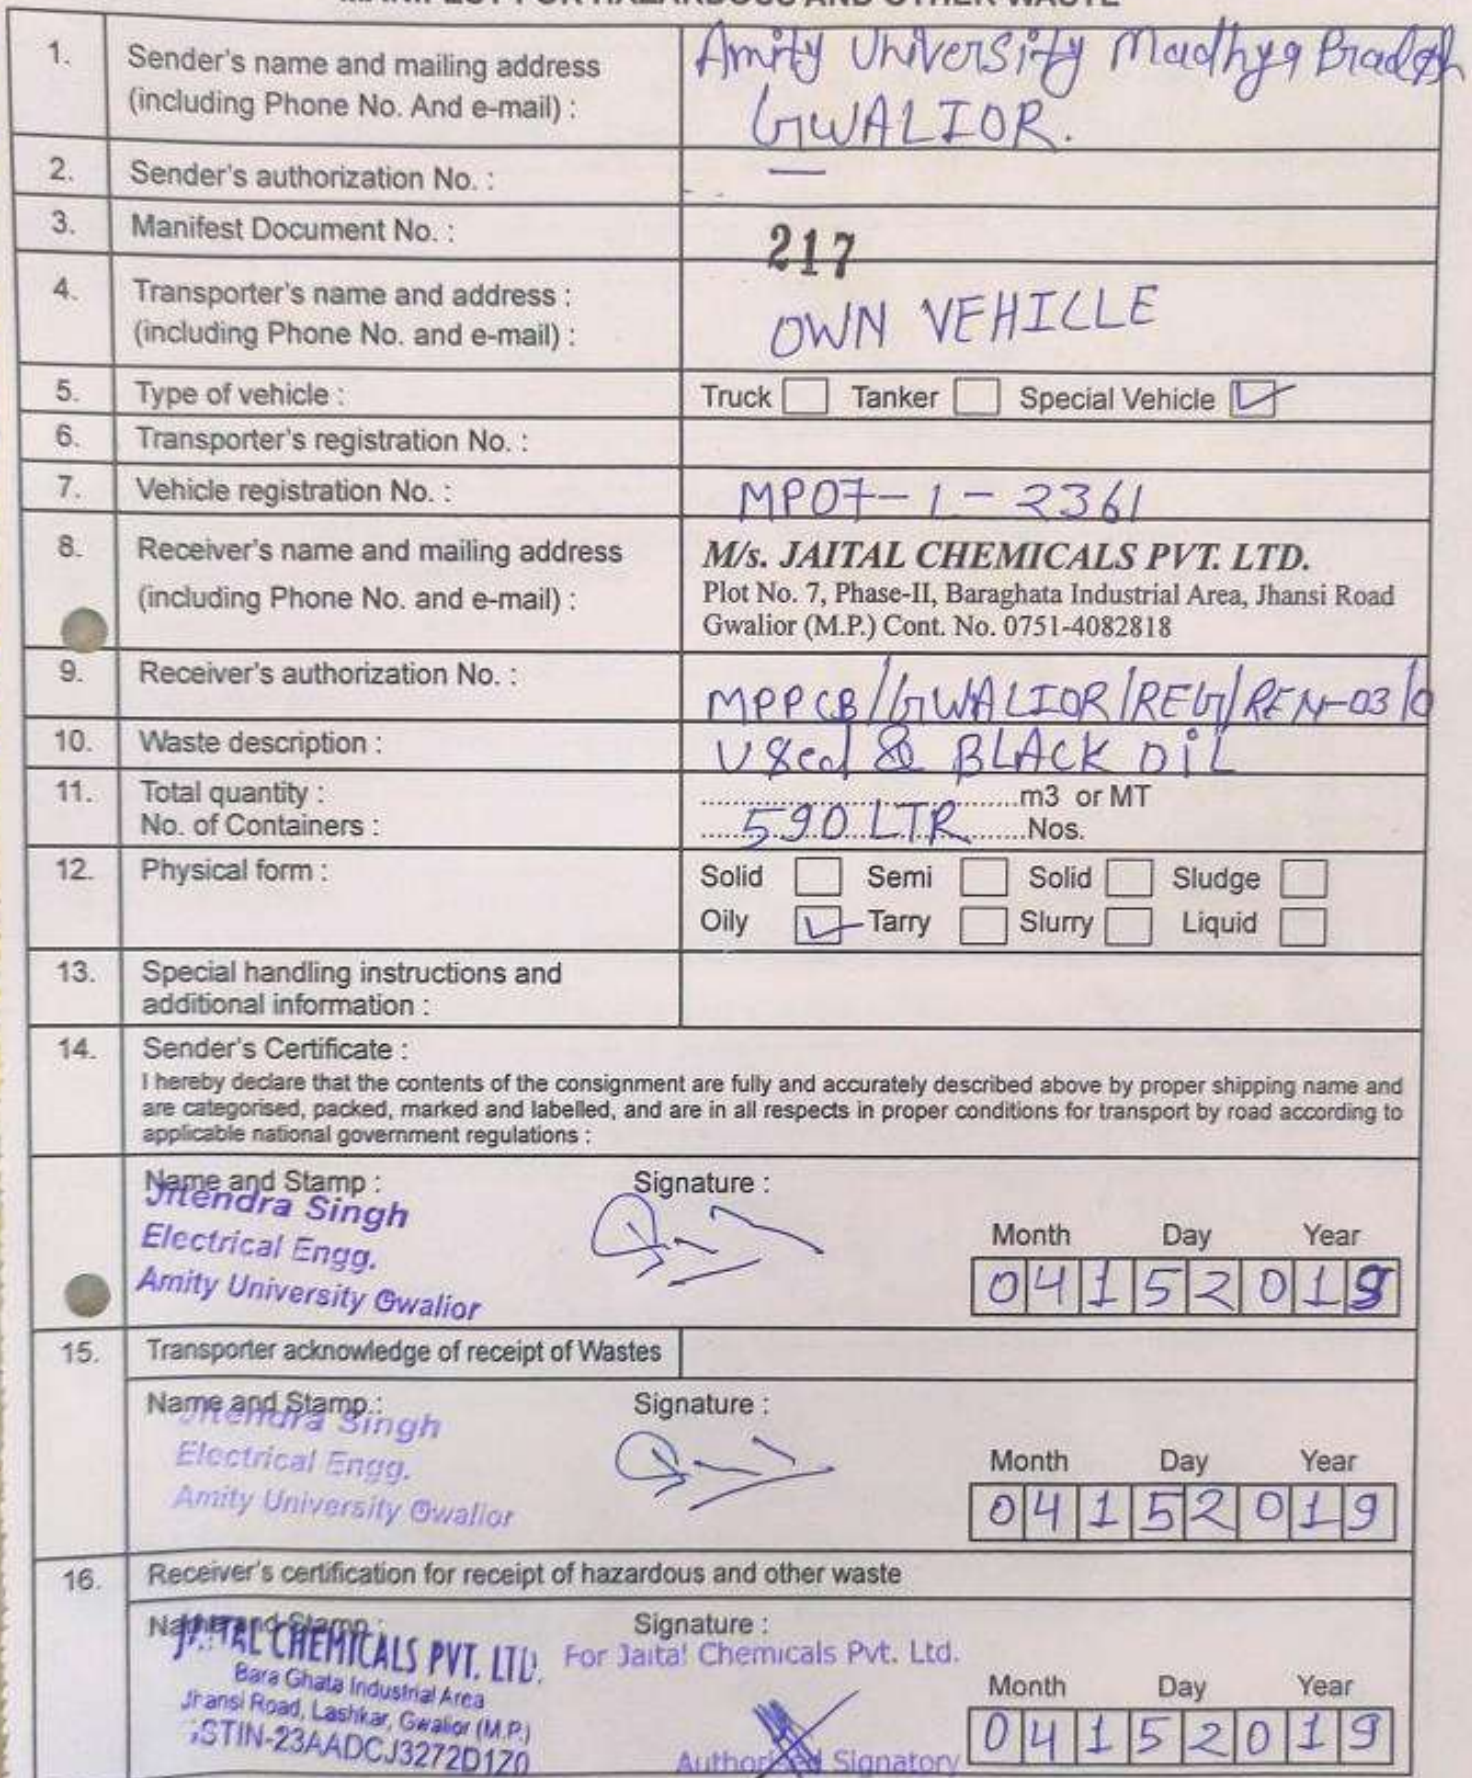 MANIFEST FOR HAZARDOUS AND OTHER WASTE
1. Sender's name and mailing address (including Phone No. And e-mail) :
Amity University Madhya Pradesh
GWALIOR.
2. Sender's authorization No. : —
3. Manifest Document No. : 217
4. Transporter's name and address :
(including Phone No. and e-mail) :
OWN VEHILLE
5. Type of vehicle : Truck Tanker Special Vehicle
6. Transporter's registration No. :
7. Vehicle registration No. : MP07-1-2361
8. Receiver's name and mailing address
(including Phone No. and e-mail) :
M/s. JAITAL CHEMICALS PVT. LTD.
Plot No. 7, Phase-II, Baraghata Industrial Area, Jhansi Road
Gwalior (M.P.) Cont. No. 0751-4082818
9. Receiver's authorization No. : MPPCB/GWALIOR/REG/REN-03/0
10. Waste description : Used & BLACK OiL
11. Total quantity : ....................m3 or MT
No. of Containers : .....590 LTR.....Nos.
12. Physical form : Solid Semi Solid Sludge
Oily Tarry Slurry Liquid
13. Special handling instructions and
additional information :
14. Sender's Certificate :
I hereby declare that the contents of the consignment are fully and accurately described above by proper shipping name and
are categorised, packed, marked and labelled, and are in all respects in proper conditions for transport by road according to
applicable national government regulations :
Name and Stamp : Signature :
Jitendra Singh
Electrical Engg.
Amity University Gwalior
Month Day Year
04152019
15. Transporter acknowledge of receipt of Wastes
Name and Stamp : Signature :
Jitendra Singh
Electrical Engg.
Amity University Gwalior
Month Day Year
04152019
16. Receiver's certification for receipt of hazardous and other waste
Name and Stamp : Signature :
JAITAL CHEMICALS PVT. LTD.
Bara Ghata Industrial Area
Jhansi Road, Lashkar, Gwalior (M.P.)
GSTIN-23AADCJ3272D1Z0
For Jaital Chemicals Pvt. Ltd.
Authorised Signatory
Month Day Year
04152019